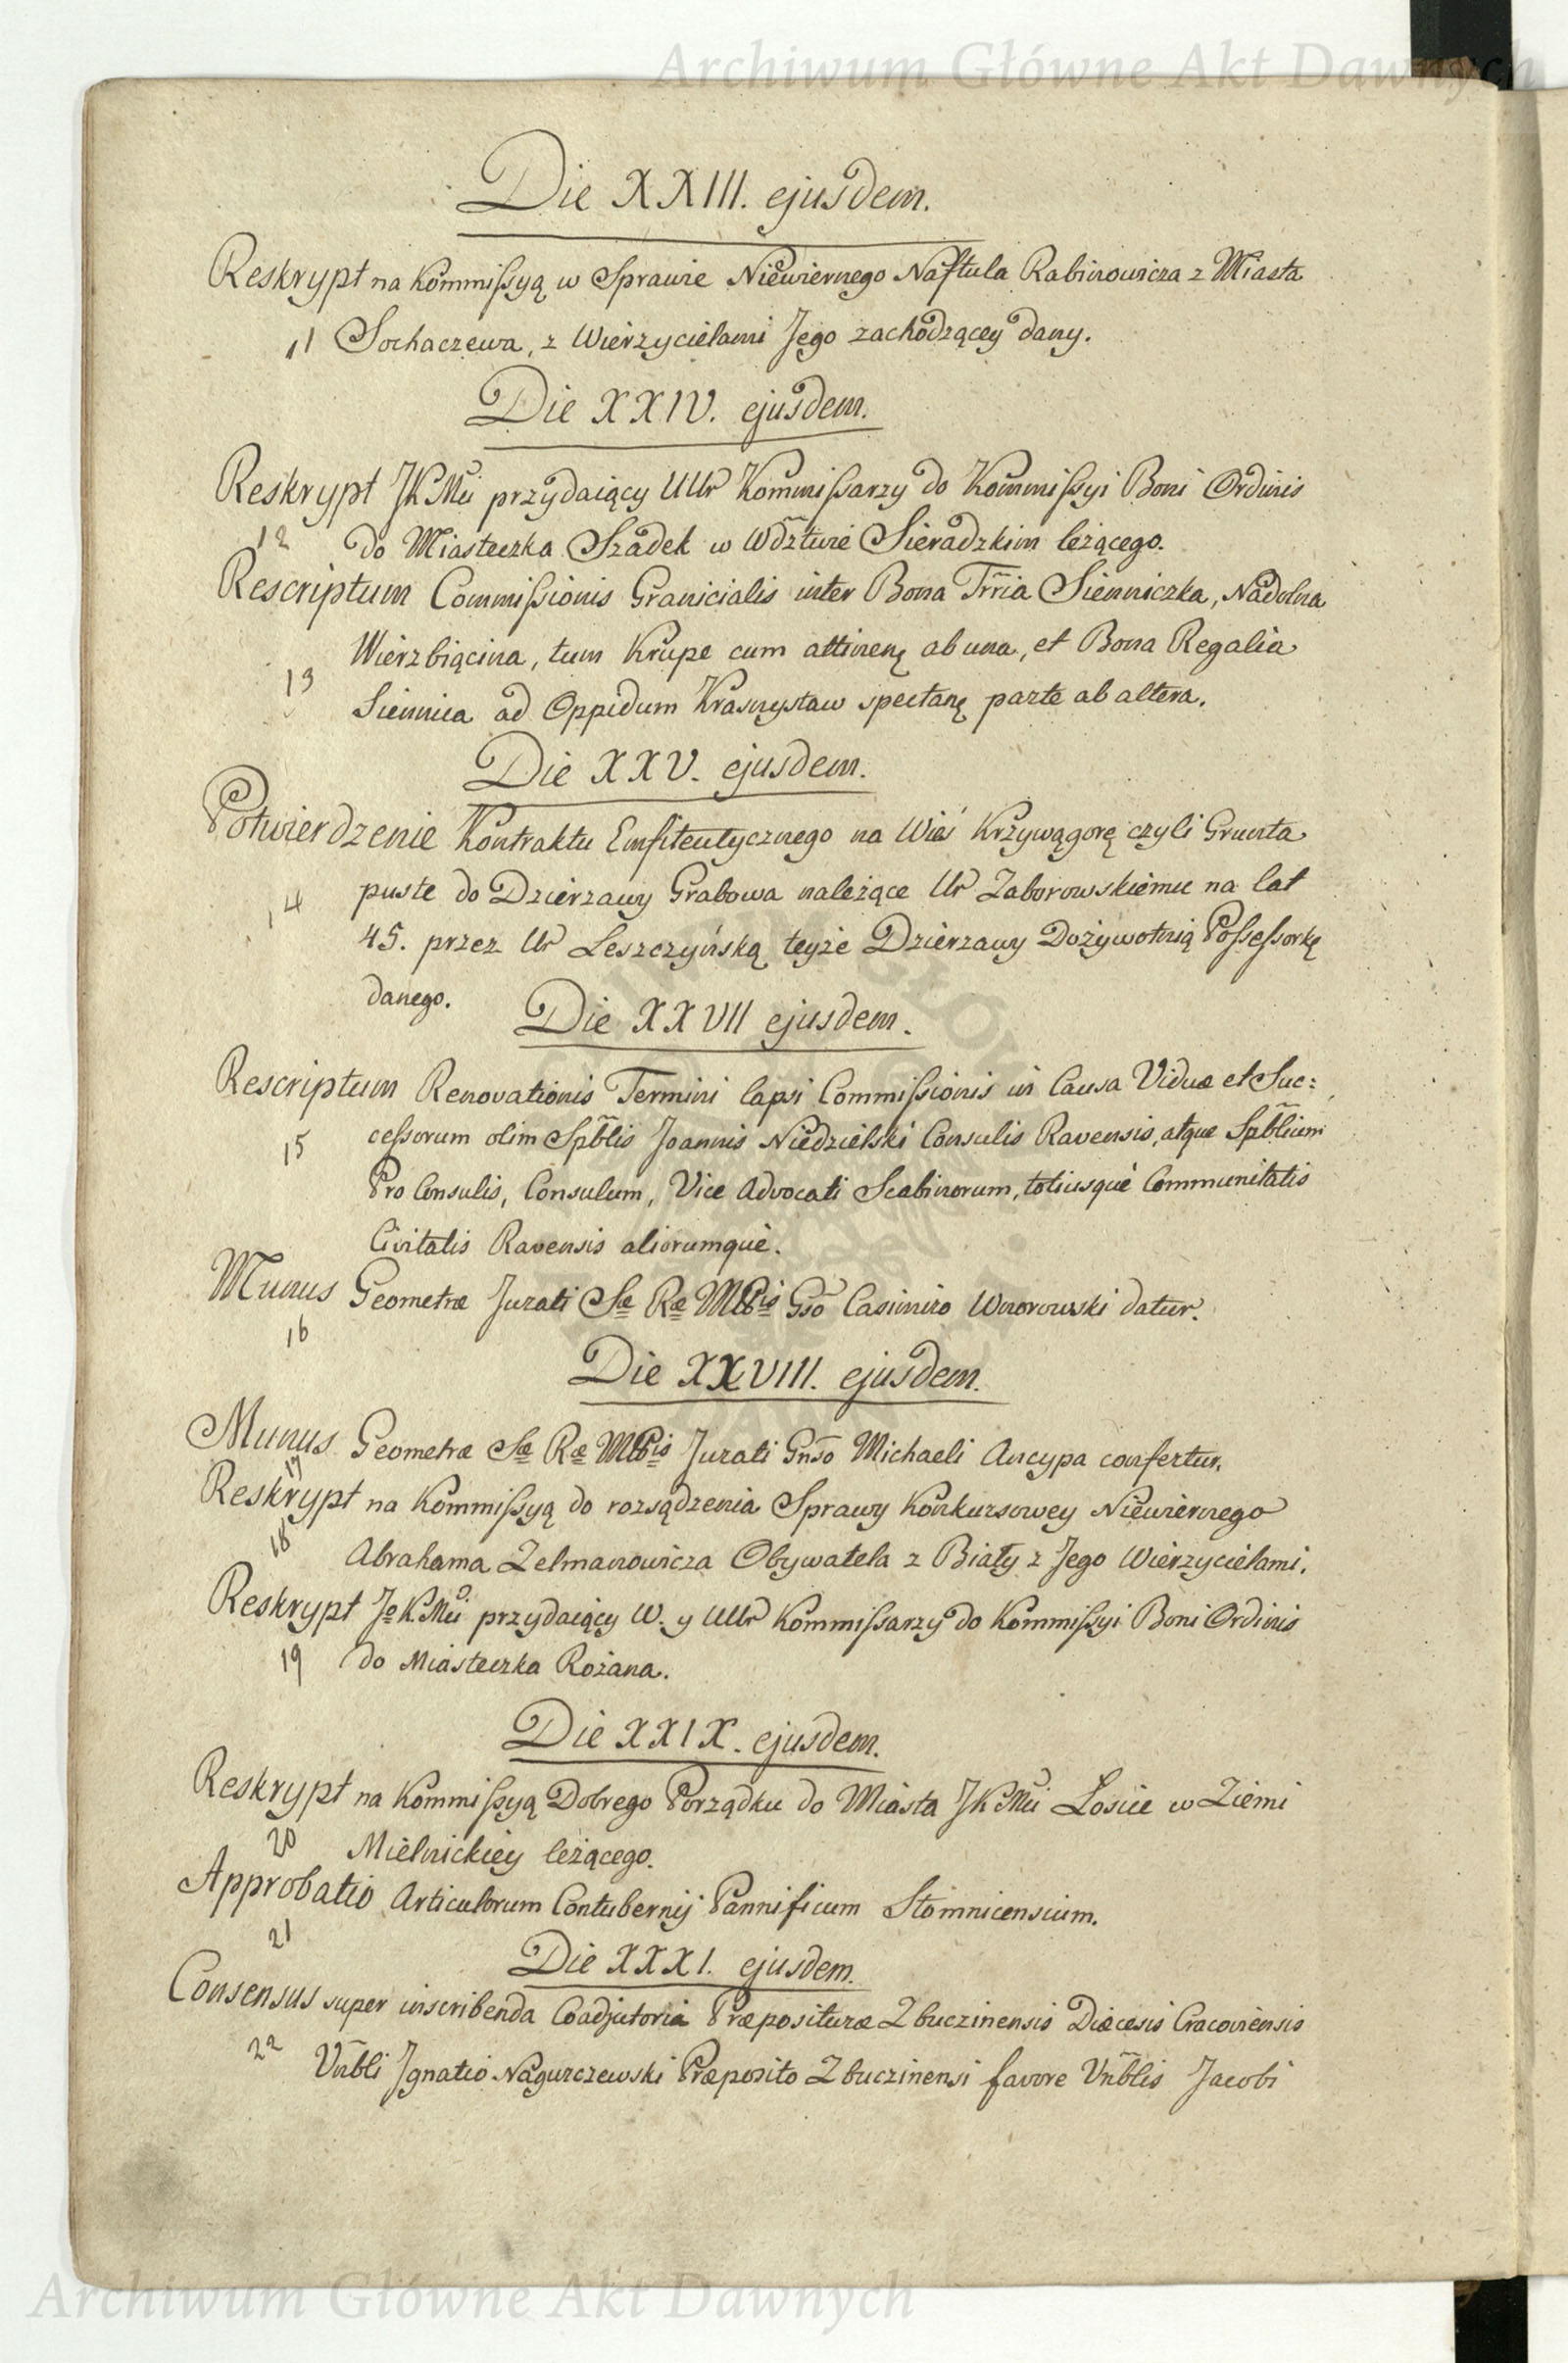 Archiwum Główne Akt Dawnych
Die XXIII. ejusdem.
Reskrypt na Kommißyą w Sprawie Niewiernego Naftula Rabinowicza z Miasta
11 Sochaczewa, z Wierzycielami Jego zachodzącey dany.
Die XXIV. ejusdem.
Reskrypt JKMci przydaiący UUr Kommißarzy do Kommißyi Boni Ordinis
12 do Miasteczka Szadek w Wdztwie Sieradzkim leżącego.
Rescriptum Commißionis Granicialis inter Bona Trria Sienniczka, Nadolna
Wierzbiącina, tum Krupe cum attinenę ab una, et Bona Regalia
13 Siennica ad Oppidum Krasnystaw spectanę parte ab altera.
Die XXV. ejusdem.
Potwierdzenie Kontraktu Emfiteutycznego na Wieś Krzywągorę czyli Grunta
14 puste do Dzierzawy Grabowa należące Ur Zaborowskiemu na lat
45. przez Ur Leszczyńską teyże Dzierzawy Dożywotnią Poßeßorkę
danego.
Die XXVII ejusdem.
Rescriptum Renovationis Termini lapsi Commißionis in Causa Viduæ et Suc:
15 ceßorum olim Spblis Joannis Niedzielski Consulis Ravensis, atque Spblium
Pro Consulis, Consulum, Vice Advocati Scabinorum, totiusque Communitatis
Civitatis Ravensis aliorumque.
Munus Geometræ Jurati Sæ Ræ Mttis Gso Casimiro Worowski datur.
16
Die XXVIII. ejusdem.
Munus Geometræ Sæ Ræ Mttis Jurati Gnso Michaeli Ancypa confertur.
17
Reskrypt na Kommißyą do rozsądzenia Sprawy Konkursowey Niewiernego
18 Abrahama Zelmanowicza Obywatela z Biały z Jego Wierzycielami.
Reskrypt JoKMci przydaiący W. y UUr Kommißarzy do Kommißyi Boni Ordinis
19 do Miasteczka Rożana.
Die XXIX. ejusdem.
Reskrypt na Kommißyą Dobrego Porządku do Miasta JKMci Łosice w Ziemi
20 Mielnickiey leżącego.
Approbatio Articulorum Contubernij Pannificum Stomnicensium.
21
Die XXXI. ejusdem.
Consensus super inscribenda Coadjutoria Præposituræ Zbuczinensis Diæcesis Cracoviensis
22 Vnbli Jgnatio Nagurczewski Præposito Zbuczinensi favore Vnblis Jacobi
Archiwum Główne Akt Dawnych